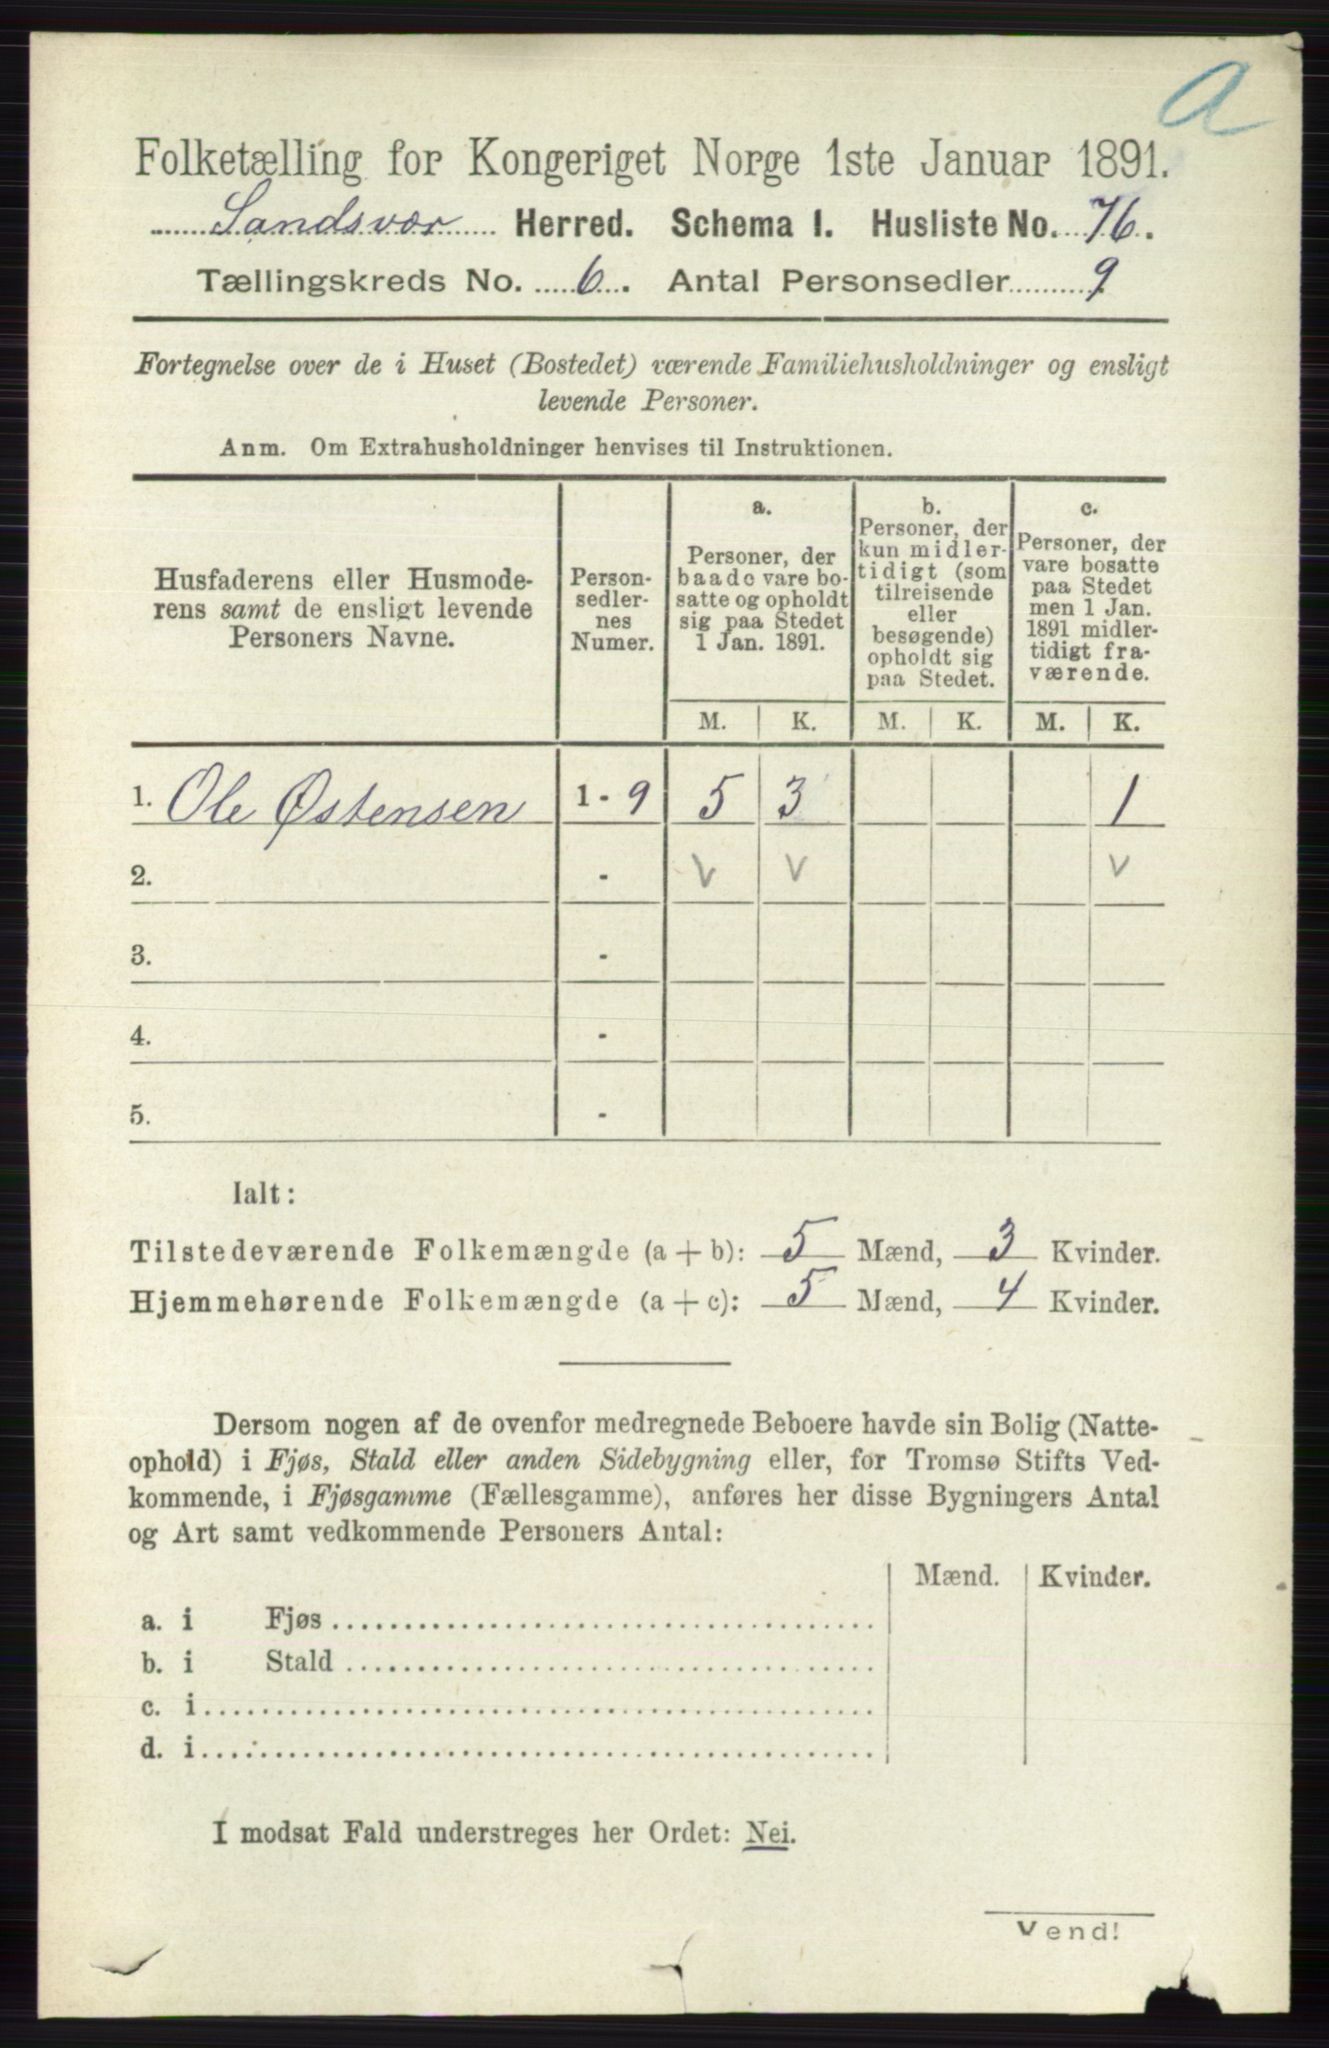 a
Folketælling for Kongeriget Norge 1ste Januar 1891.
Sandsvær Herred. Schema I. Husliste No. 76.
Tællingskreds No. 6. Antal Personsedler 9
Fortegnelse over de i Huset (Bostedet) værende Familiehusholdninger og ensligt
levende Personer.
Anm. Om Extrahusholdninger henvises til Instruktionen.
Husfaderens eller Husmode-
rens samt de ensligt levende
Personers Navne.
Person-
sedler-
nes
Numer.
a.
Personer, der
baade vare bo-
satte og opholdt
sig paa Stedet
1 Jan. 1891.
b.
Personer, der
kun midler-
tidigt (som
tilreisende
eller
besøgende)
opholdt sig
paa Stedet.
c.
Personer, der
vare bosatte
paa Stedet
men 1 Jan.
1891 midler-
tidigt fra-
værende.
M. K. M. K. M. K.
1. Ole Østensen 1 - 9 5 3 1
2. - v v v
3. -
4. -
5. -
Ialt:
Tilstedeværende Folkemængde (a + b): 5 Mænd, 3 Kvinder.
Hjemmehørende Folkemængde (a + c): 5 Mænd, 4 Kvinder.
Dersom nogen af de ovenfor medregnede Beboere havde sin Bolig (Natte-
ophold) i Fjøs, Stald eller anden Sidebygning eller, for Tromsø Stifts Ved-
kommende, i Fjøsgamme (Fællesgamme), anføres her disse Bygningers Antal
og Art samt vedkommende Personers Antal:
Mænd. Kvinder.
a. i Fjøs
b. i Stald
c. i
d. i
I modsat Fald understreges her Ordet: Nei.
Vend!